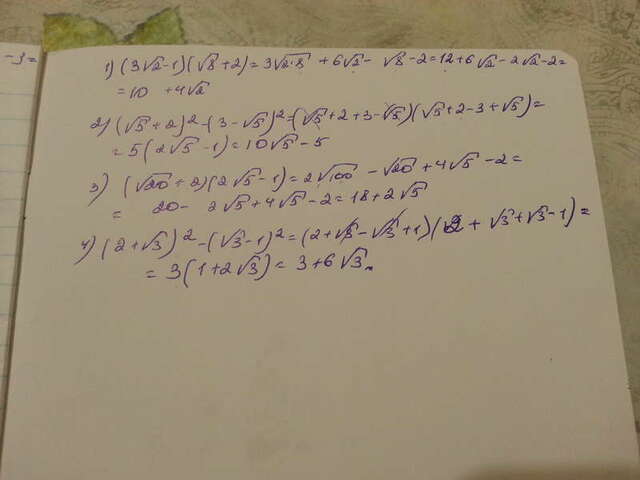 -9=
1) (3√2-1)(√8+2)=3√2·8 +6√2- √8-2=12+6√2-2√2-2=
=10 +4√2
2) (√5+2)²-(3-√5)²=(√5+2+3-√5)(√5+2-3+√5)=
=5(2√5-1)=10√5-5
3) (√20+2)(2√5-1)=2√100-√20+4√5-2=
= 20- 2√5+4√5-2=18+2√5
4) (2+√3)²-(√3-1)²=(2+√3-√3+1)(2+√3+√3-1)=
=3(1+2√3)=3+6√3.